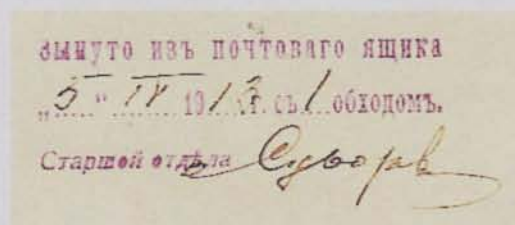 ВЫНУТО ИЗЪ ПОЧТОВАГО ЯЩИКА
„5“ IV 1913 г. съ 1 обходомъ.
Старшой отдѣла Суворовъ